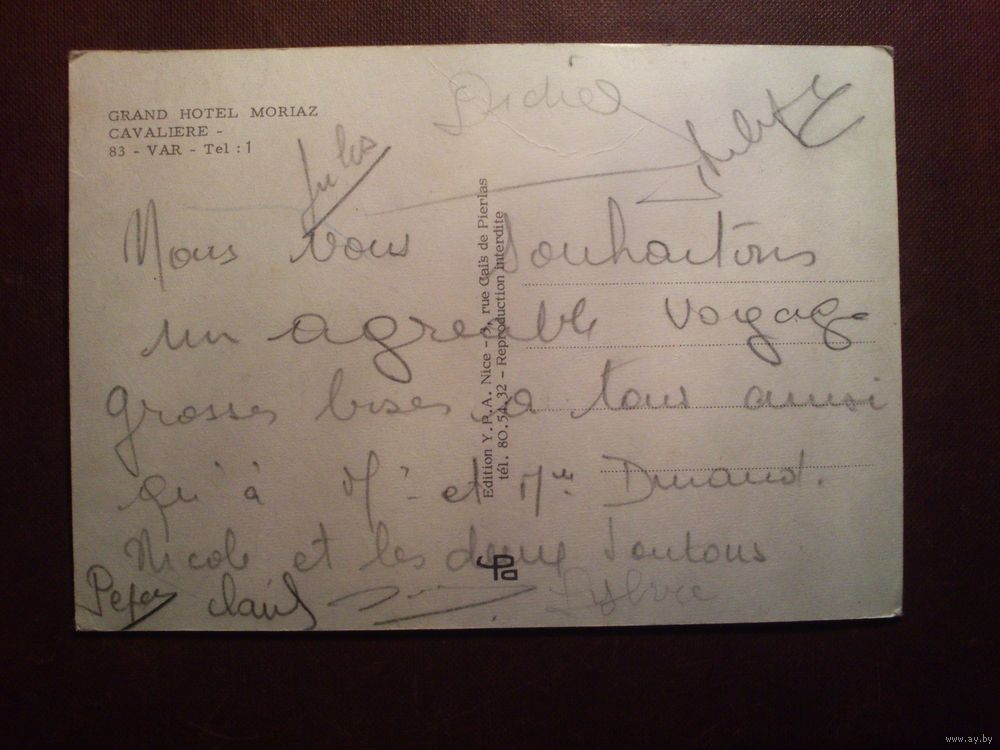 GRAND HOTEL MORIAZ
CAVALIERE -
83 - VAR - Tel : 1
Didier
Jules
Nous vous souhaitons
un agréable voyage
grosses bises a tous ainsi
qu'à Mr et Mme Durand.
Nicole et les deux Toutous
Sylvie
Edition Y.P.A. Nice - 9, rue Caïs de Pierlas
tél. 80.54.32 - Reproduction interdite
ypa
www.ay.by